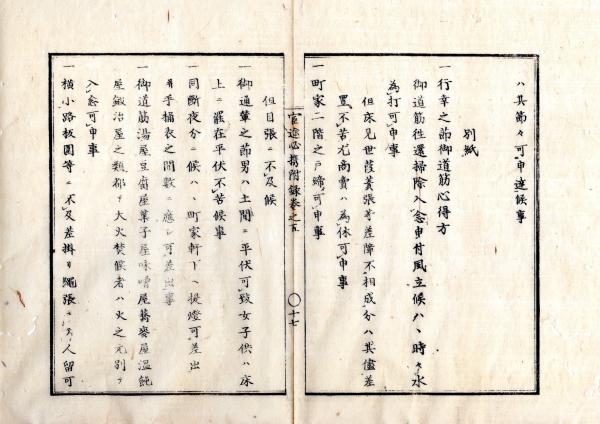 ハ其節々可申達候事
別紙
一行幸之節御道筋心得方
御道筋往還掃除入念申付風立候ハヽ時々水
為打可申事
但床見世葭簀張等差障不相成分ハ其儘差
置不苦尤商賣ハ為休可申事
一町家二階之戸締可申事
官途必携附録巻之五
十七
但目張ニ不及候
一御通輦之節男ハ土間ニ平伏可致女子供ハ床
上ニ罷在平伏不苦候事
一同断夜分ニ候ハヽ町家軒下ヘ提燈可差出
并手桶表之間數ニ應シ可差出事
一御道筋湯屋豆腐屋菓子屋味噌屋蕎麥屋温飩
屋鍛冶屋之類都テ大火焚候者ハ火之元別テ
入念可申事
一横小路板圍等ニ不及差掛リ繩張ニ人留可